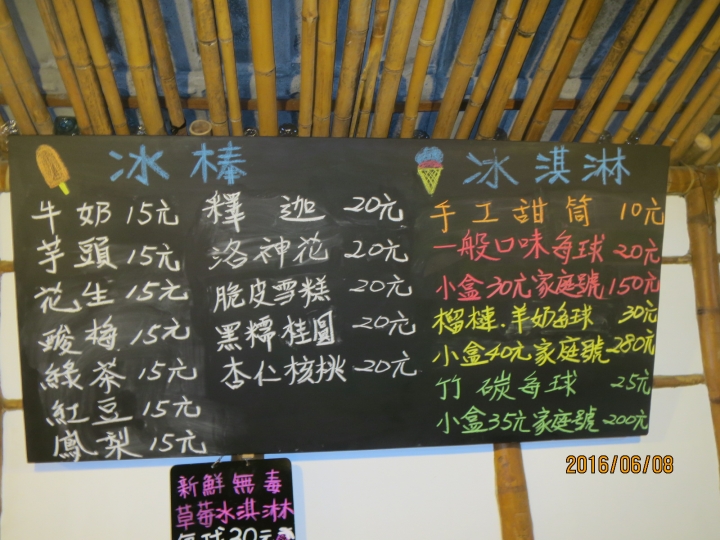 冰棒
牛奶 15元
芋頭 15元
花生 15元
酸梅 15元
綠茶 15元
紅豆 15元
鳳梨 15元
釋迦 20元
洛神花 20元
脆皮雪糕 20元
黑糯桂圓 20元
杏仁核桃 20元
冰淇淋
手工甜筒 10元
一般口味每球 20元
小盒30元家庭號150元
榴槤.羊奶每球 30元
小盒40元家庭號280元
竹碳每球 25元
小盒35元家庭號200元
新鮮無毒
草莓冰淇淋
每球30元
2016/06/08